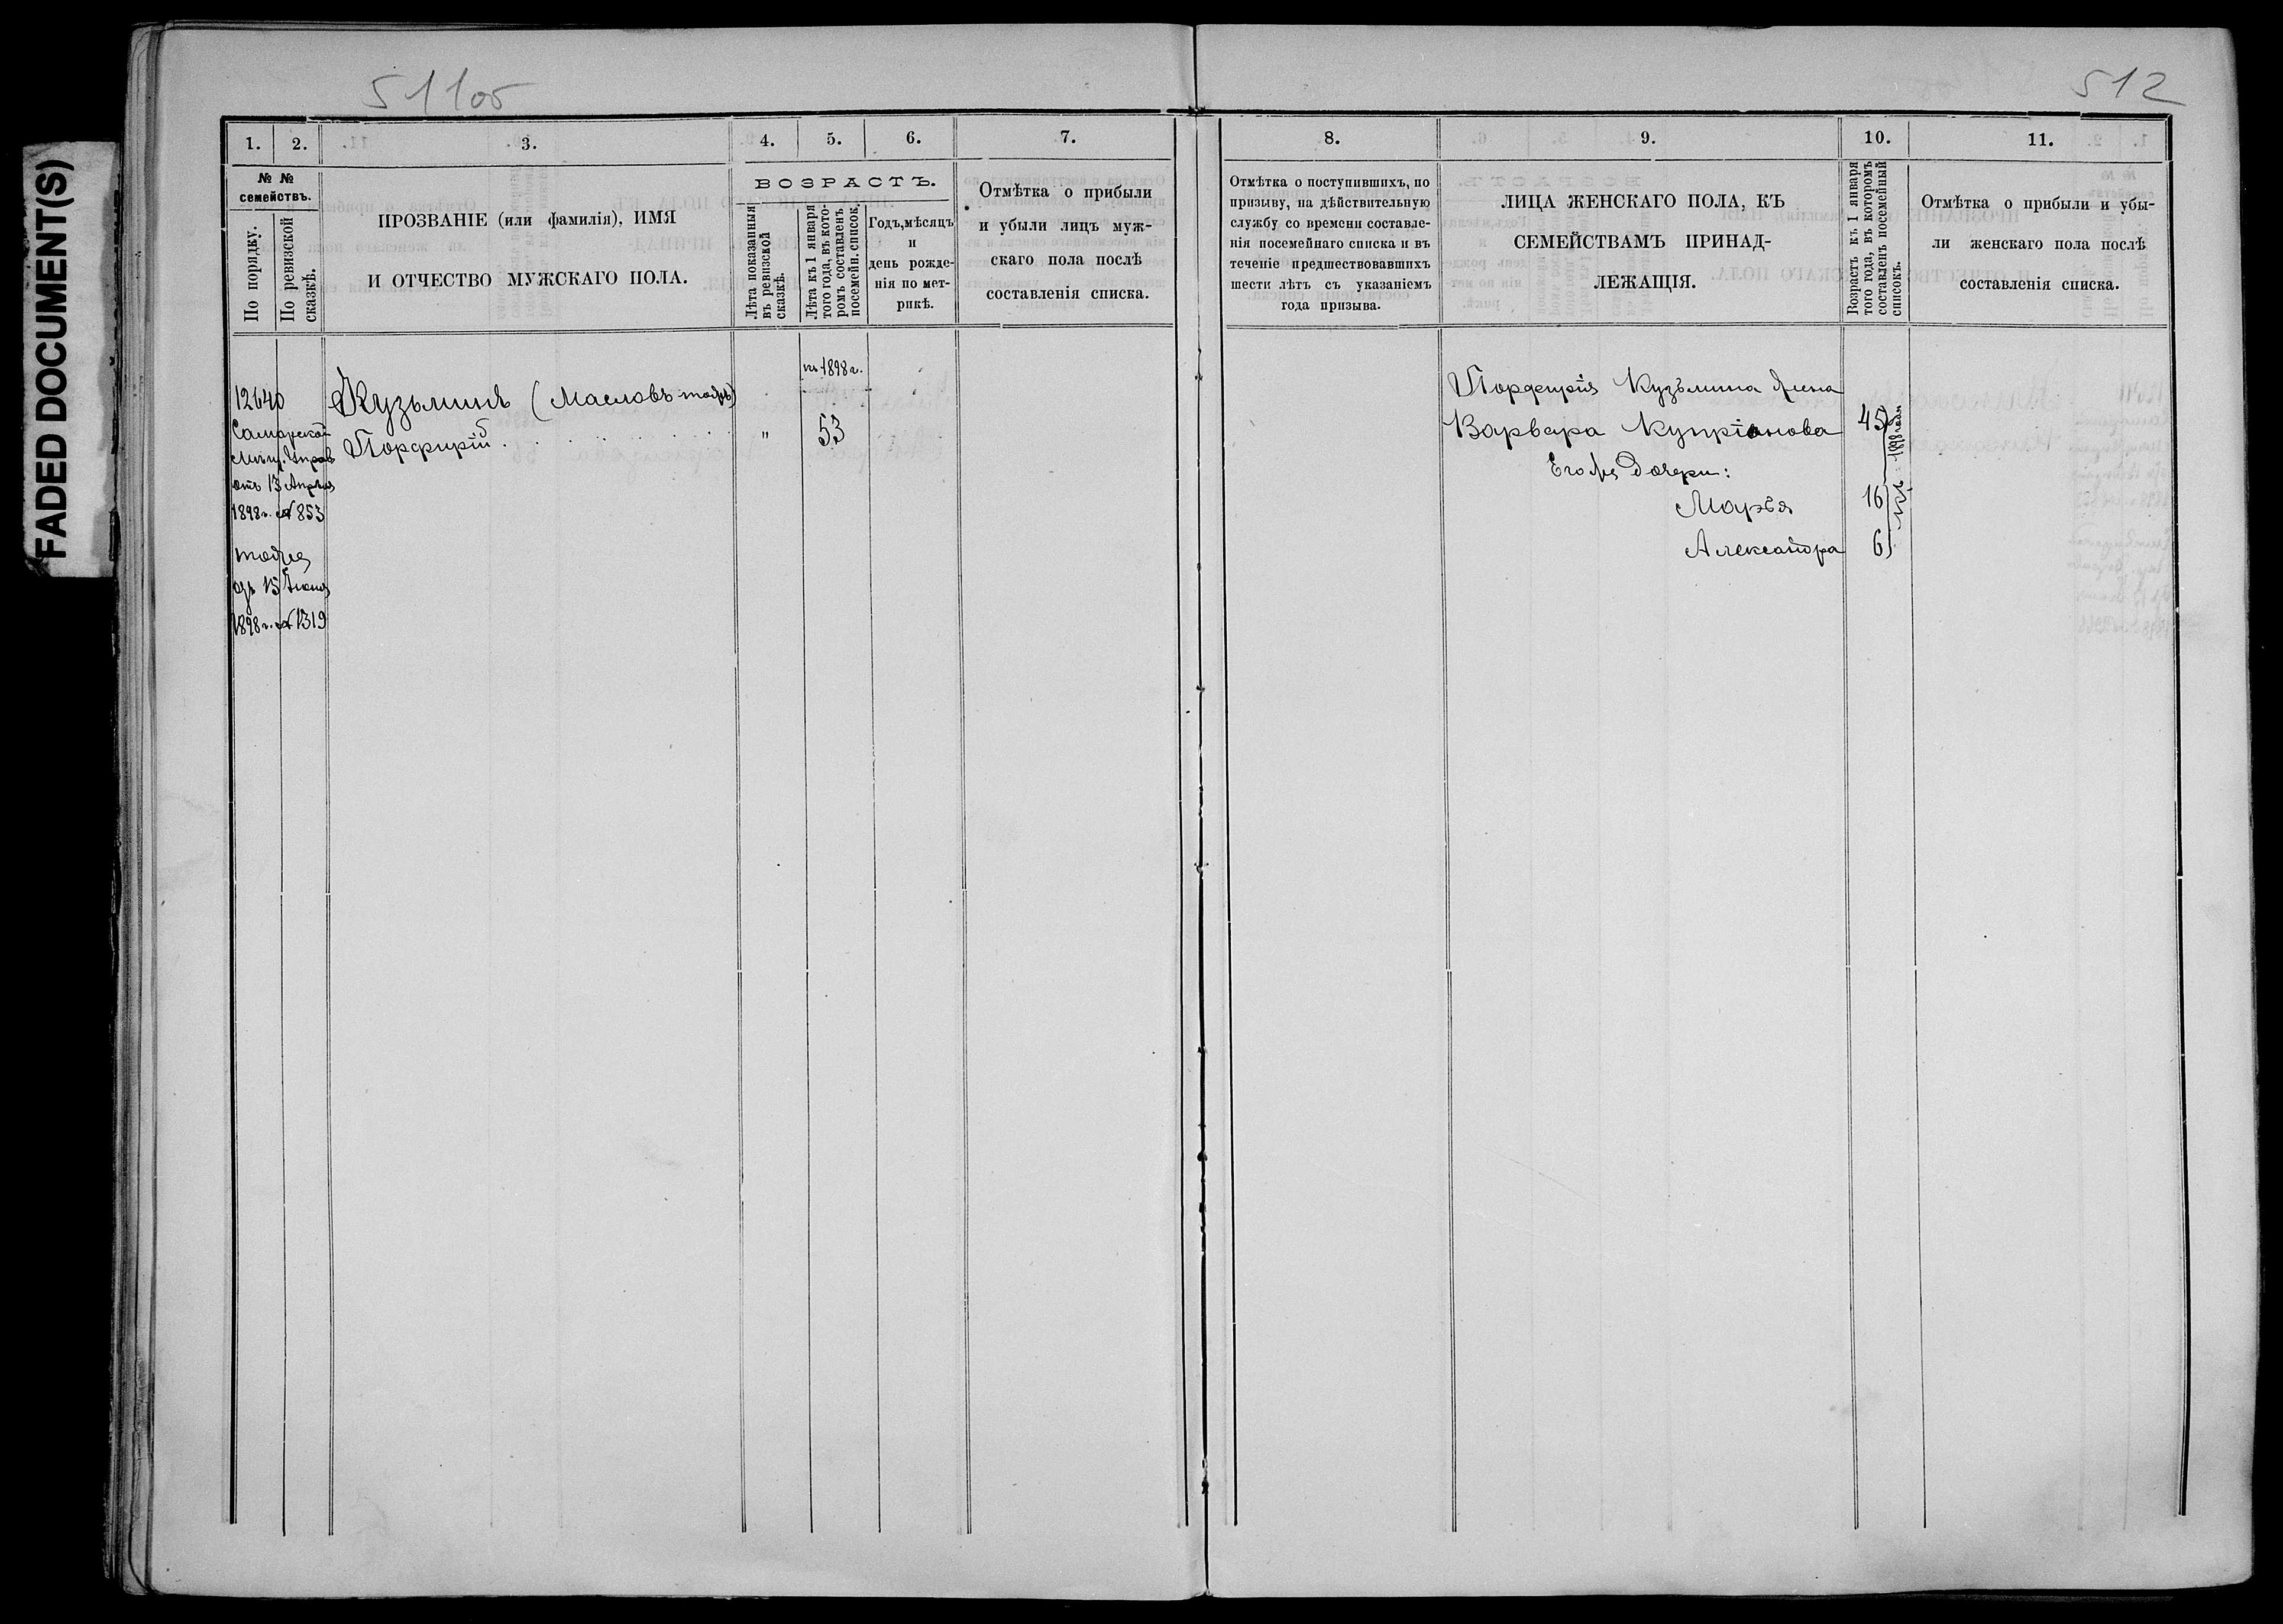 FADED DOCUMENT(S)
511об
1. 2. 3. 4. 5. 6. 7.
№ № семействъ.
По порядку.
По ревизской сказкѣ.
ПРОЗВАНІЕ (или фамилія), ИМЯ
И ОТЧЕСТВО МУЖСКАГО ПОЛА.
ВОЗРАСТЪ.
Лѣта показанныя
въ ревизской
сказкѣ.
Лѣта къ 1 января
того года, въ кото-
ромъ составленъ
посемейн. список.
Годъ, мѣсяцъ
и
день рожде-
нія по мет-
рикѣ.
Отмѣтка о прибыли
и убыли лицъ муж-
скаго пола послѣ
составленія списка.
къ 1898 г.
12640
Кузьминъ (Масловъ тожъ)
Самарской
Мѣщ. Управ
отъ 13 Апрѣля
1898 г. № 853
Порфирій
"
53
тоже
отъ 15 Іюня
1898 г. № 1319
512
8. 9. 10. 11.
Отмѣтка о поступившихъ, по
призыву, на дѣйствительную
службу со времени составле-
нія посемейнаго списка и въ
теченіе предшествовавшихъ
шести лѣтъ съ указаніемъ
года призыва.
ЛИЦА ЖЕНСКАГО ПОЛА, КЪ
СЕМЕЙСТВАМЪ ПРИНАД-
ЛЕЖАЩІЯ.
Возрастъ къ 1 января
того года, въ которомъ
составленъ посемейный
списокъ.
Отмѣтка о прибыли и убы-
ли женскаго пола послѣ
составленія списка.
Порфирія Кузьмина жена
Варвара Купріанова 45
Его же дочери:
Марья 16
Александра 6
къ 1898 году